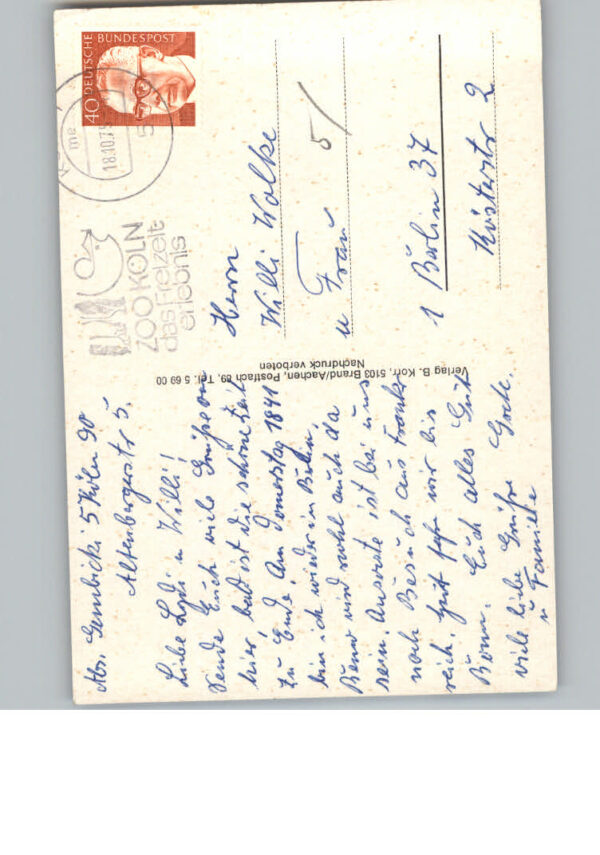 Abs. Gembicki 5 Köln 90
Altenbergerstr 5.
Liebe Lydi u Willi!
Sende Euch viele Grüße von
hier, bald ist die schöne Zeit
zu Ende. Am Donnerstag 1841
bin ich wieder in Berlin,
Bernd wird wohl auch da
sein. ist bei uns
noch Besuch aus Frank
reich. wir bis
Bonn. Euch alles Gute
viele liebe Grüße Grete.
u Familie
Verlag B. Korr, 5103 Brand/Aachen, Postfach 69, Tel. 5 69 00
Nachdruck verboten
DEUTSCHE BUNDESPOST
40
18.10.75
ZOO KÖLN
das Freizeit
erlebnis
5/
Herrn
Willi Wolke
u Frau
1 Berlin 37
Kösterstr 2